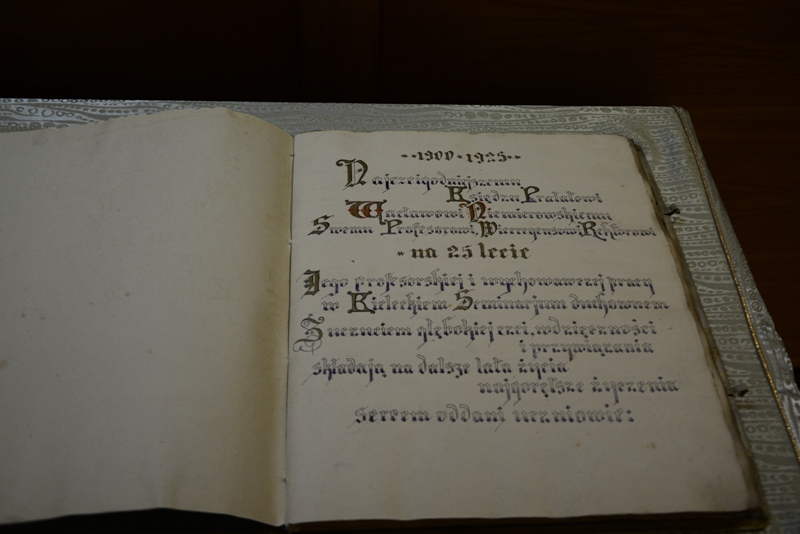 1900 • 1925
Najczcigodniejszemu
Księdzu Prałatowi
Wacławowi
Swemu Profesorowi, Wiceregensowi, Rektorowi
na 25 lecie
Jego profesorskiej i wychowawczej pracy
w Kieleckiem Seminarjum duchownem
z uczuciem głębokiej czci, wdzięczności
i przywiązania
składają na dalsze lata życia
najgorętsze życzenia
sercem oddani uczniowie: